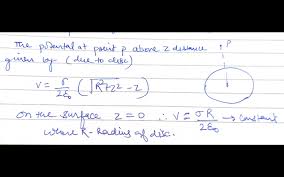 The potential at point P above z distance
given by (due to disc)
P
V = σ/2ε₀ (√R²+z² - z)
on the surface z = 0 ∴ V = σR/2ε₀ → constant
where R - Radius of disc.